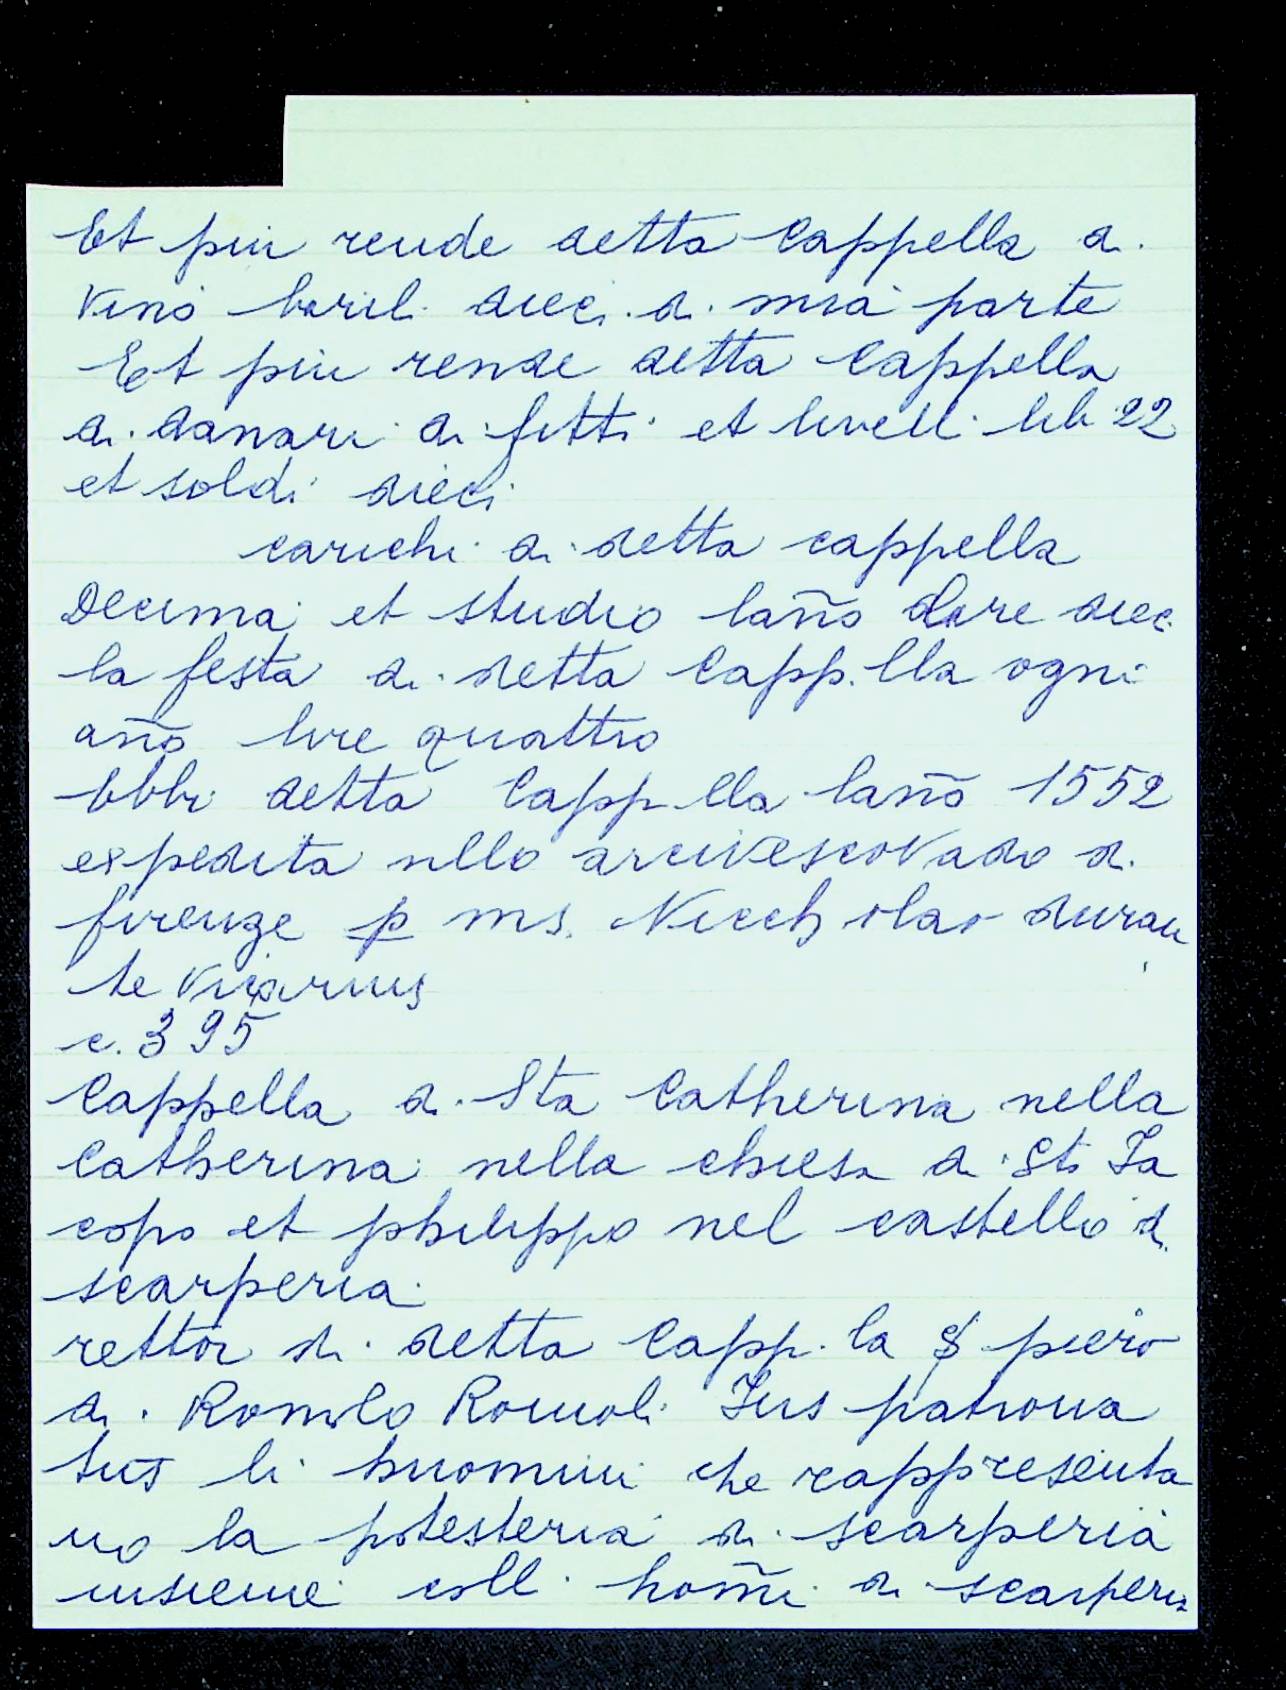 Et piu rende detta Cappella di
vino barili dieci di mia parte
Et piu rende detta Cappella
di danari di fitti et livelli lib 22
et soldi dieci
carichi di detta cappella
Decima et studio laño dare dieci
la festa di detta Capp.lla ogni
año lire quattro
Ebbi detta Capp lla laño 1552
espedita nello arcivescovado di
firenze p ms. Niccholao duran
te vicarius
c. 395
Cappella di Sta Catherina nella
Catherina nella chiesa di Sto Ja
copo et philippo nel castello di
scarperia
rettor di detta Capp.la S piero
di Romolo Romoli Jus patrona
tus li huomini che rappresenta
no la potesteria di scarperia
insieme colli homi di scarperia